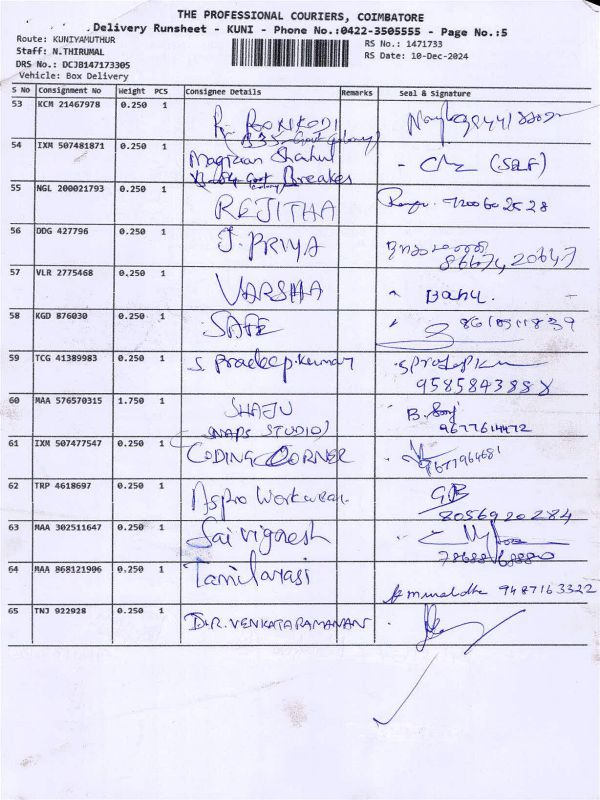 THE PROFESSIONAL COURIERS, COIMBATORE
Delivery Runsheet - KUNI - Phone No.:0422-3505555 - Page No.:5
Route: KUNIYAMUTHUR
Staff: N.THIRUMAL
RS No.: 1471733
DRS No.: DCJB147173305
RS Date: 10-Dec-2024
Vehicle: Box Delivery
S No Consignment No Weight PCS Consignee Details Remarks Seal & Signature
53 KCM 21467978 0.250 1
54 IXM 507481871 0.250 1 (SELF)
Breakes
55 NGL 200021793 0.250 1 REJITHA 7200602528
56 DDG 427796 0.250 1 J. PRIYA
57 VLR 2775468 0.250 1 VARSHA Banu.
58 KGD 876030 0.250 1 SAFE
59 TCG 41389983 0.250 1 S. Pradeep.kumar
9585843888
60 MAA 576570315 1.750 1 SHAJU B.
(MAPS STUDIO) 9677614472
61 IXM 507477547 0.250 1 CODING CORNER 9677964681
62 TRP 4618697 0.250 1 Aspro Workwear GB
8056920284
63 MAA 302511647 0.250 1 Sai vignesh
64 MAA 868121906 0.250 1 Tamilarasi
9487163322
65 TNJ 922928 0.250 1 D.R. VENKATARAMANAN